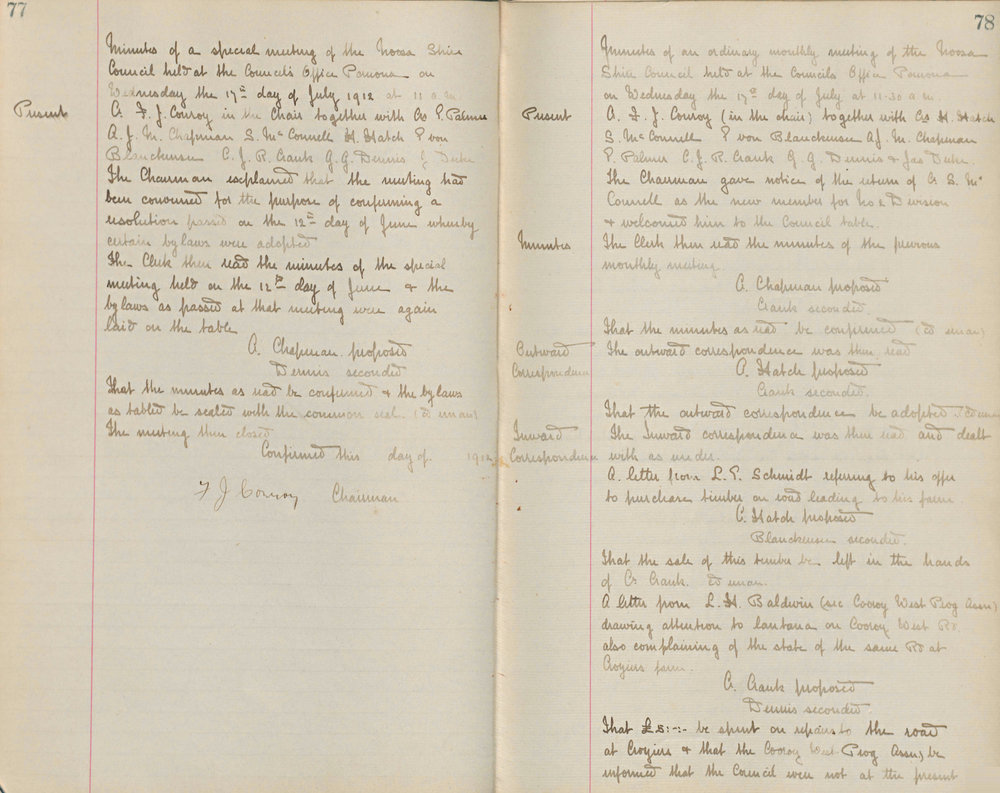 77
Minutes of a special meeting of the Noosa Shire
Council held at the Council's Office Pomona on
Wednesday the 17th day of July 1912 at 11 a.m.
Present
Cr. F. J. Conroy in the Chair together with Crs E. Palmer
A. J. M. Chapman S. McConnell H. Hatch E von
Blanckensee C. J. R. Crank G. G. Dennis J Duke
The Chairman explained that the meeting had
been convened for the purpose of confirming a
resolution passed on the 12th day of June whereby
certain bylaws were adopted
The Clerk then read the minutes of the special
meeting held on the 12th day of June & the
bylaws as passed at that meeting were again
laid on the table
Cr. Chapman proposed
Dennis seconded
That the minutes as read be confirmed & the bylaws
as tabled be sealed with the common seal. (Cd unan)
The meeting then closed
Confirmed this day of 1912
F J Conroy Chairman
78
Minutes of an ordinary monthly meeting of the Noosa
Shire Council held at the Councils Office Pomona
on Wednesday the 17th day of July at 11.30 a.m.
Present
Cr. F. J. Conroy (in the chair) together with Crs H. Hatch
S. McConnell E von Blanckensee A. J. M. Chapman
E. Palmer C. J. R. Crank G. G. Dennis & Jas Duke.
The Chairman gave notice of the return of Cr S. Mc
Connell as the new member for No 2 Division
& welcomed him to the Council table.
Minutes
The Clerk then read the minutes of the previous
monthly meeting.
Cr. Chapman proposed
Crank seconded.
That the minutes as read be confirmed (Cd unan)
Outward
Correspondence
The outward correspondence was then read
Cr. Hatch proposed
Crank seconded.
That the outward correspondence be adopted. Cd unan
Inward
Correspondence
The Inward correspondence was then read and dealt
with as under.
A letter from L. E. Schmidt referring to his offer
to purchase timber on road leading to his farm.
Cr. Hatch proposed
Blanckensee seconded.
That the sale of this timber be left in the hands
of Cr Crank. Cd unan.
A letter from L. H. Baldwin (sec Cooroy West Prog Assn)
drawing attention to lantana on Cooroy West Rd
also complaining of the state of the same Rd at
Croziers farm.
Cr. Crank proposed
Dennis seconded.
That £5:-:- be spent on repairs to the road
at Croziers & that the Cooroy West Prog Assn) be
informed that the Council were not at the present